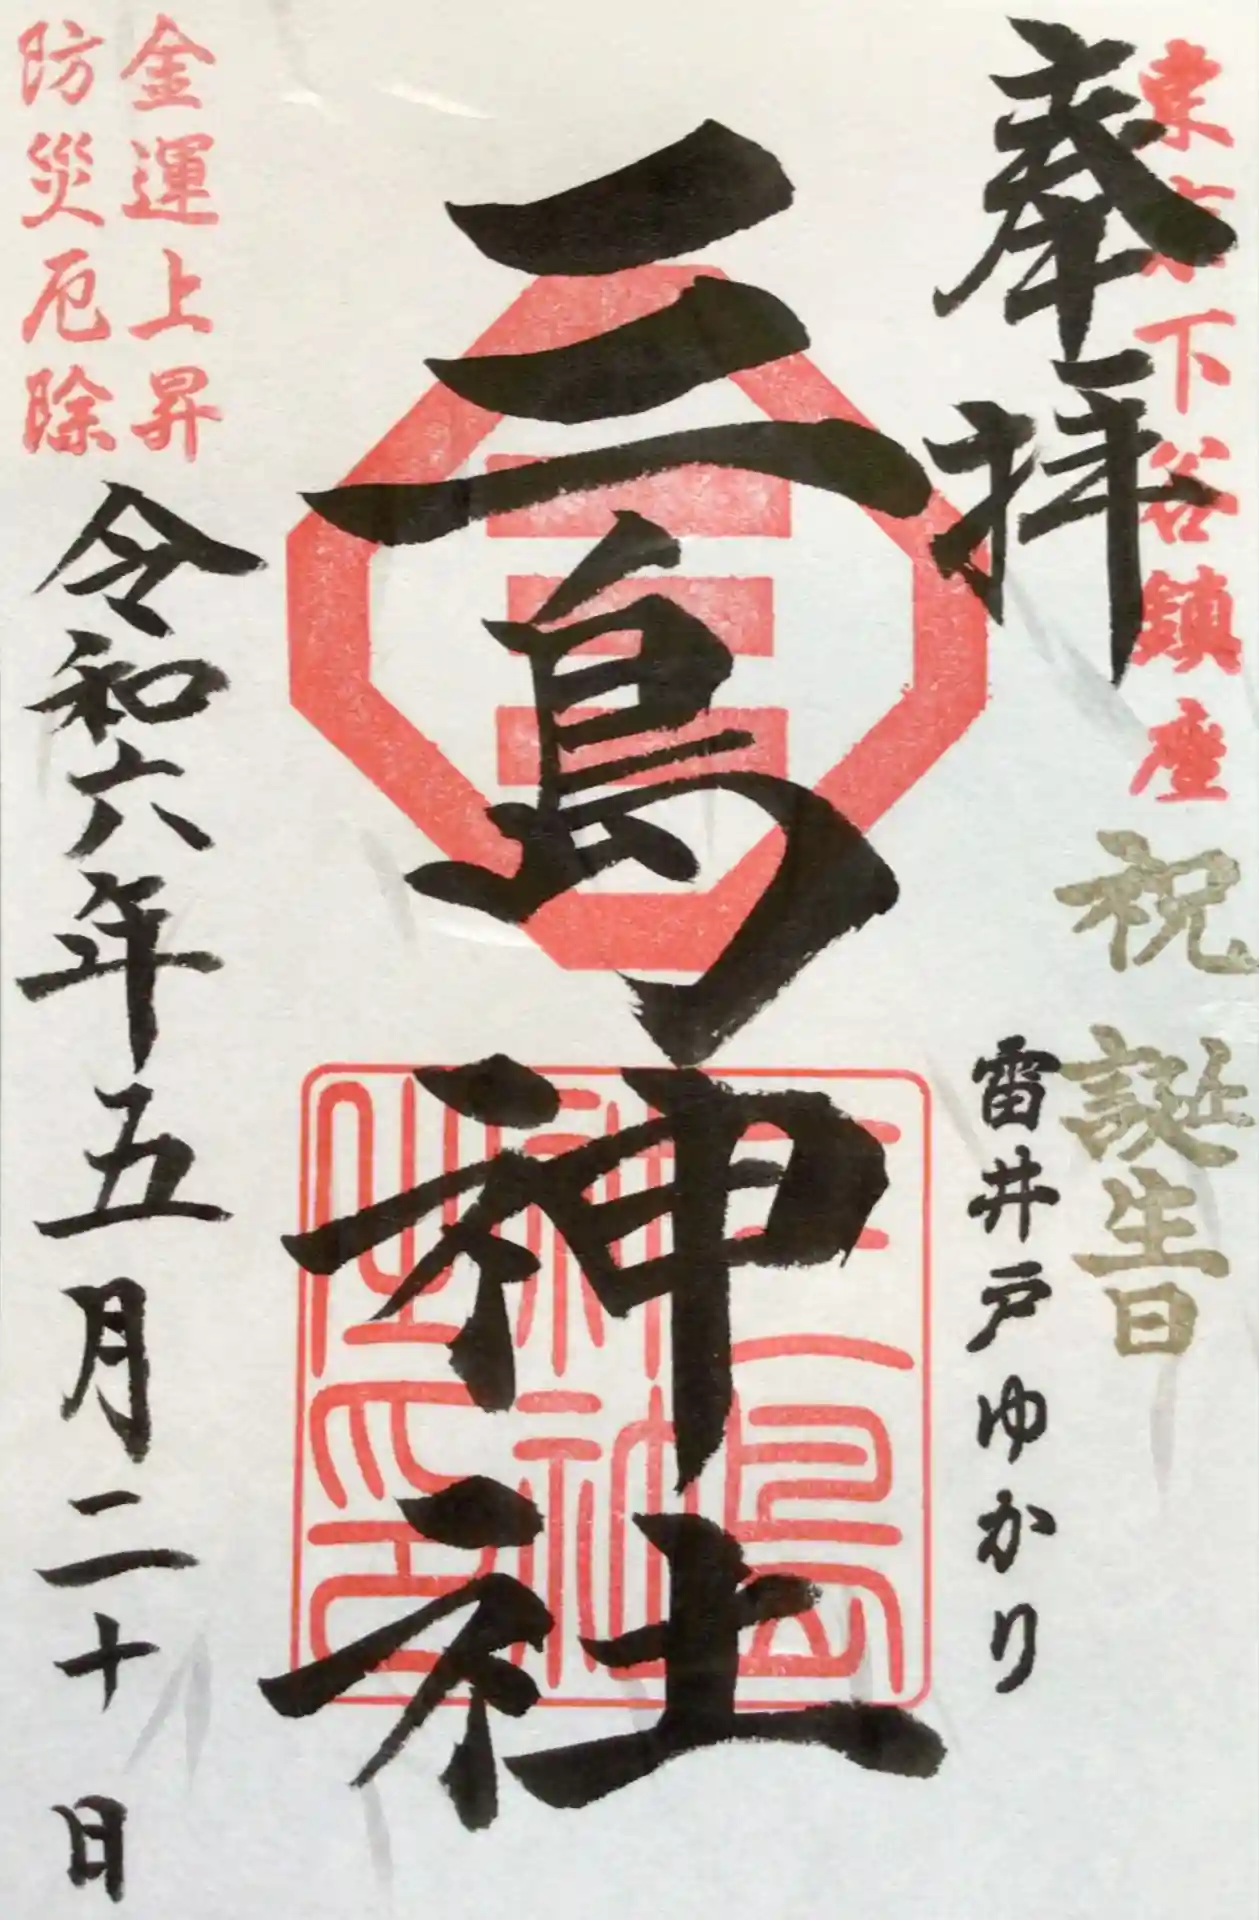 東京下谷鎮座
奉拝
祝誕生日
雷井戸ゆかり
三島神社
三島神社之印
金運上昇
防災厄除
令和六年五月二十日